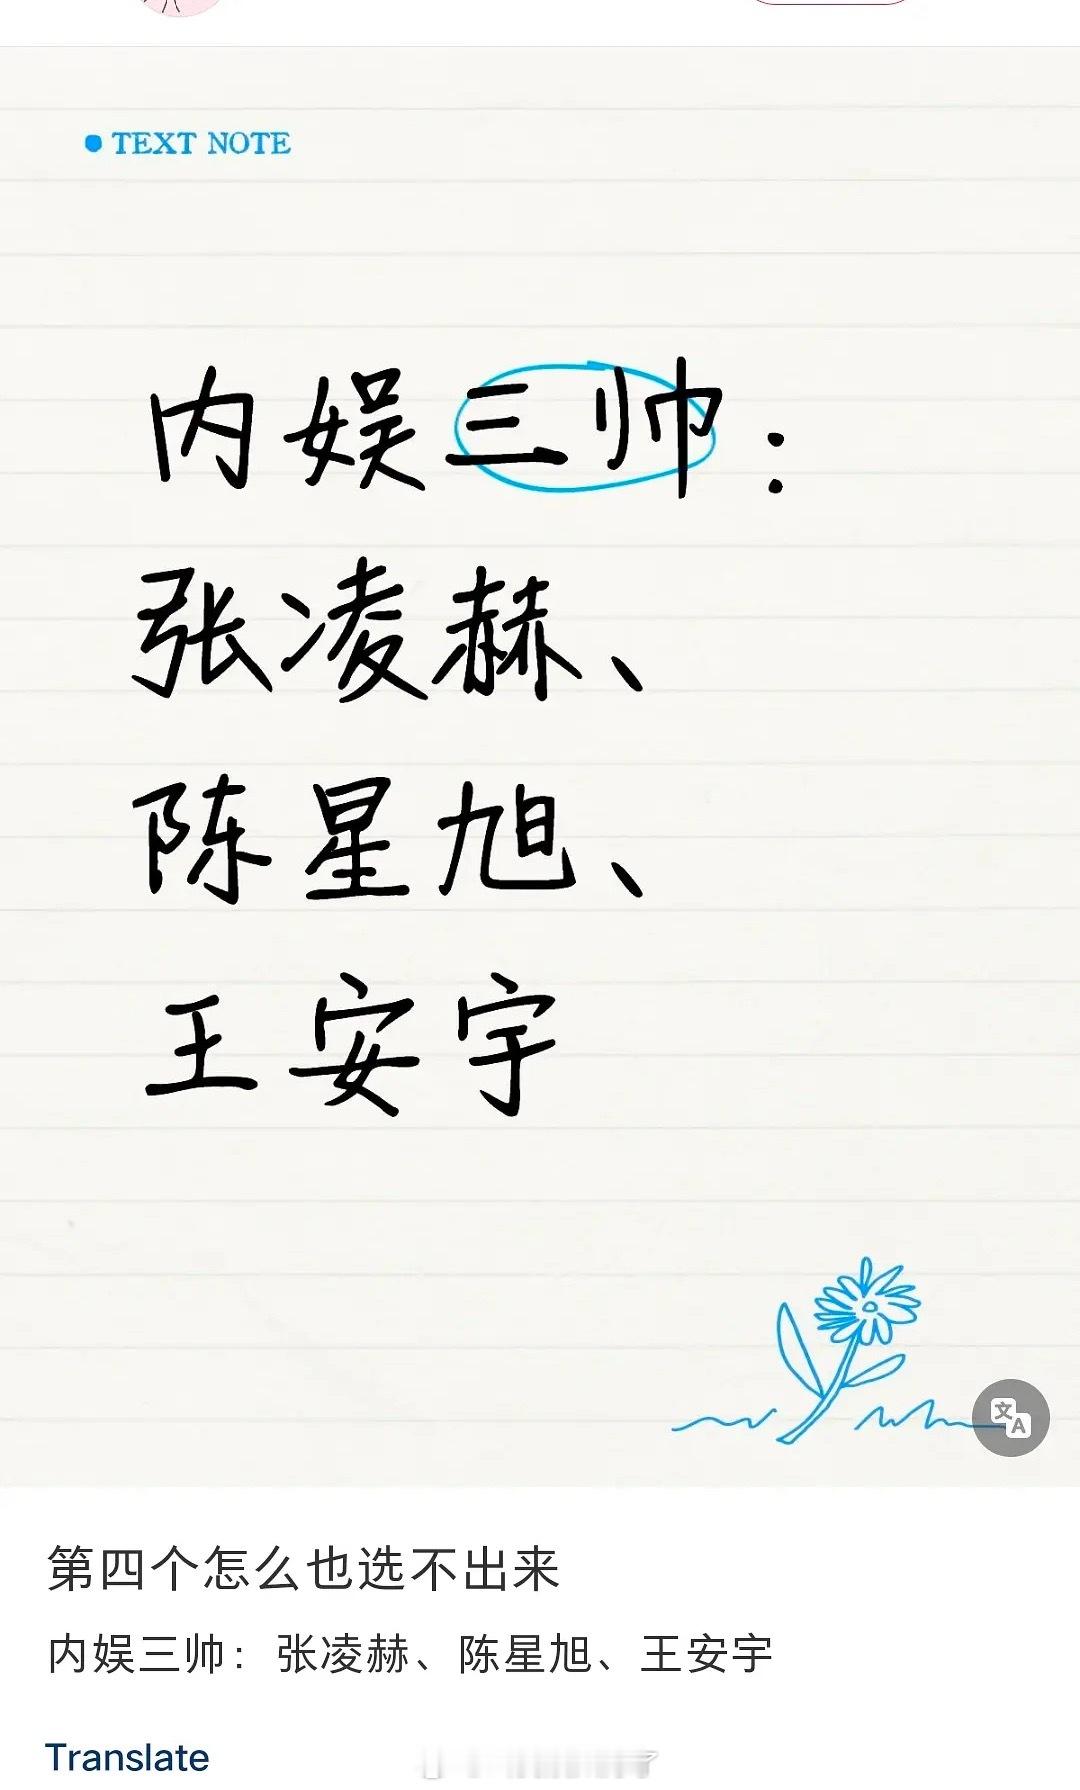 TEXT NOTE
内娱三帅：
张凌赫、
陈星旭、
王安宇
第四个怎么也选不出来
内娱三帅：张凌赫、陈星旭、王安宇
Translate